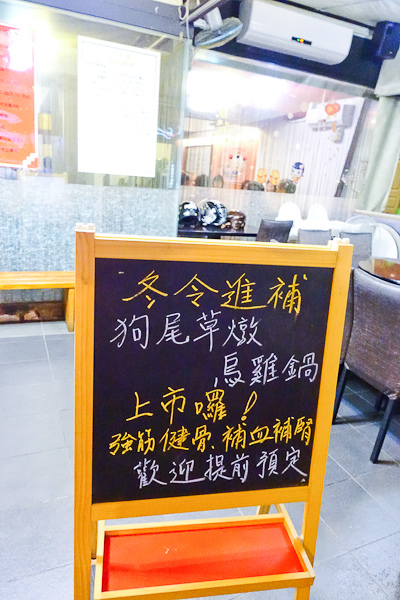 冬令進補
狗尾草燉
烏雞鍋
上市囉！
強筋健骨、補血補腎
歡迎提前預定